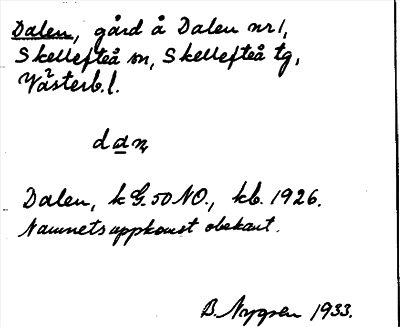 Dalen, gård å Dalen nr 1,
Skellefteå sn, Skellefteå tg,
Västerb. l.
Dalen, k G. 50 NO., kb. 1926.
Namnets uppkomst obekant.
B. Nygren 1933.